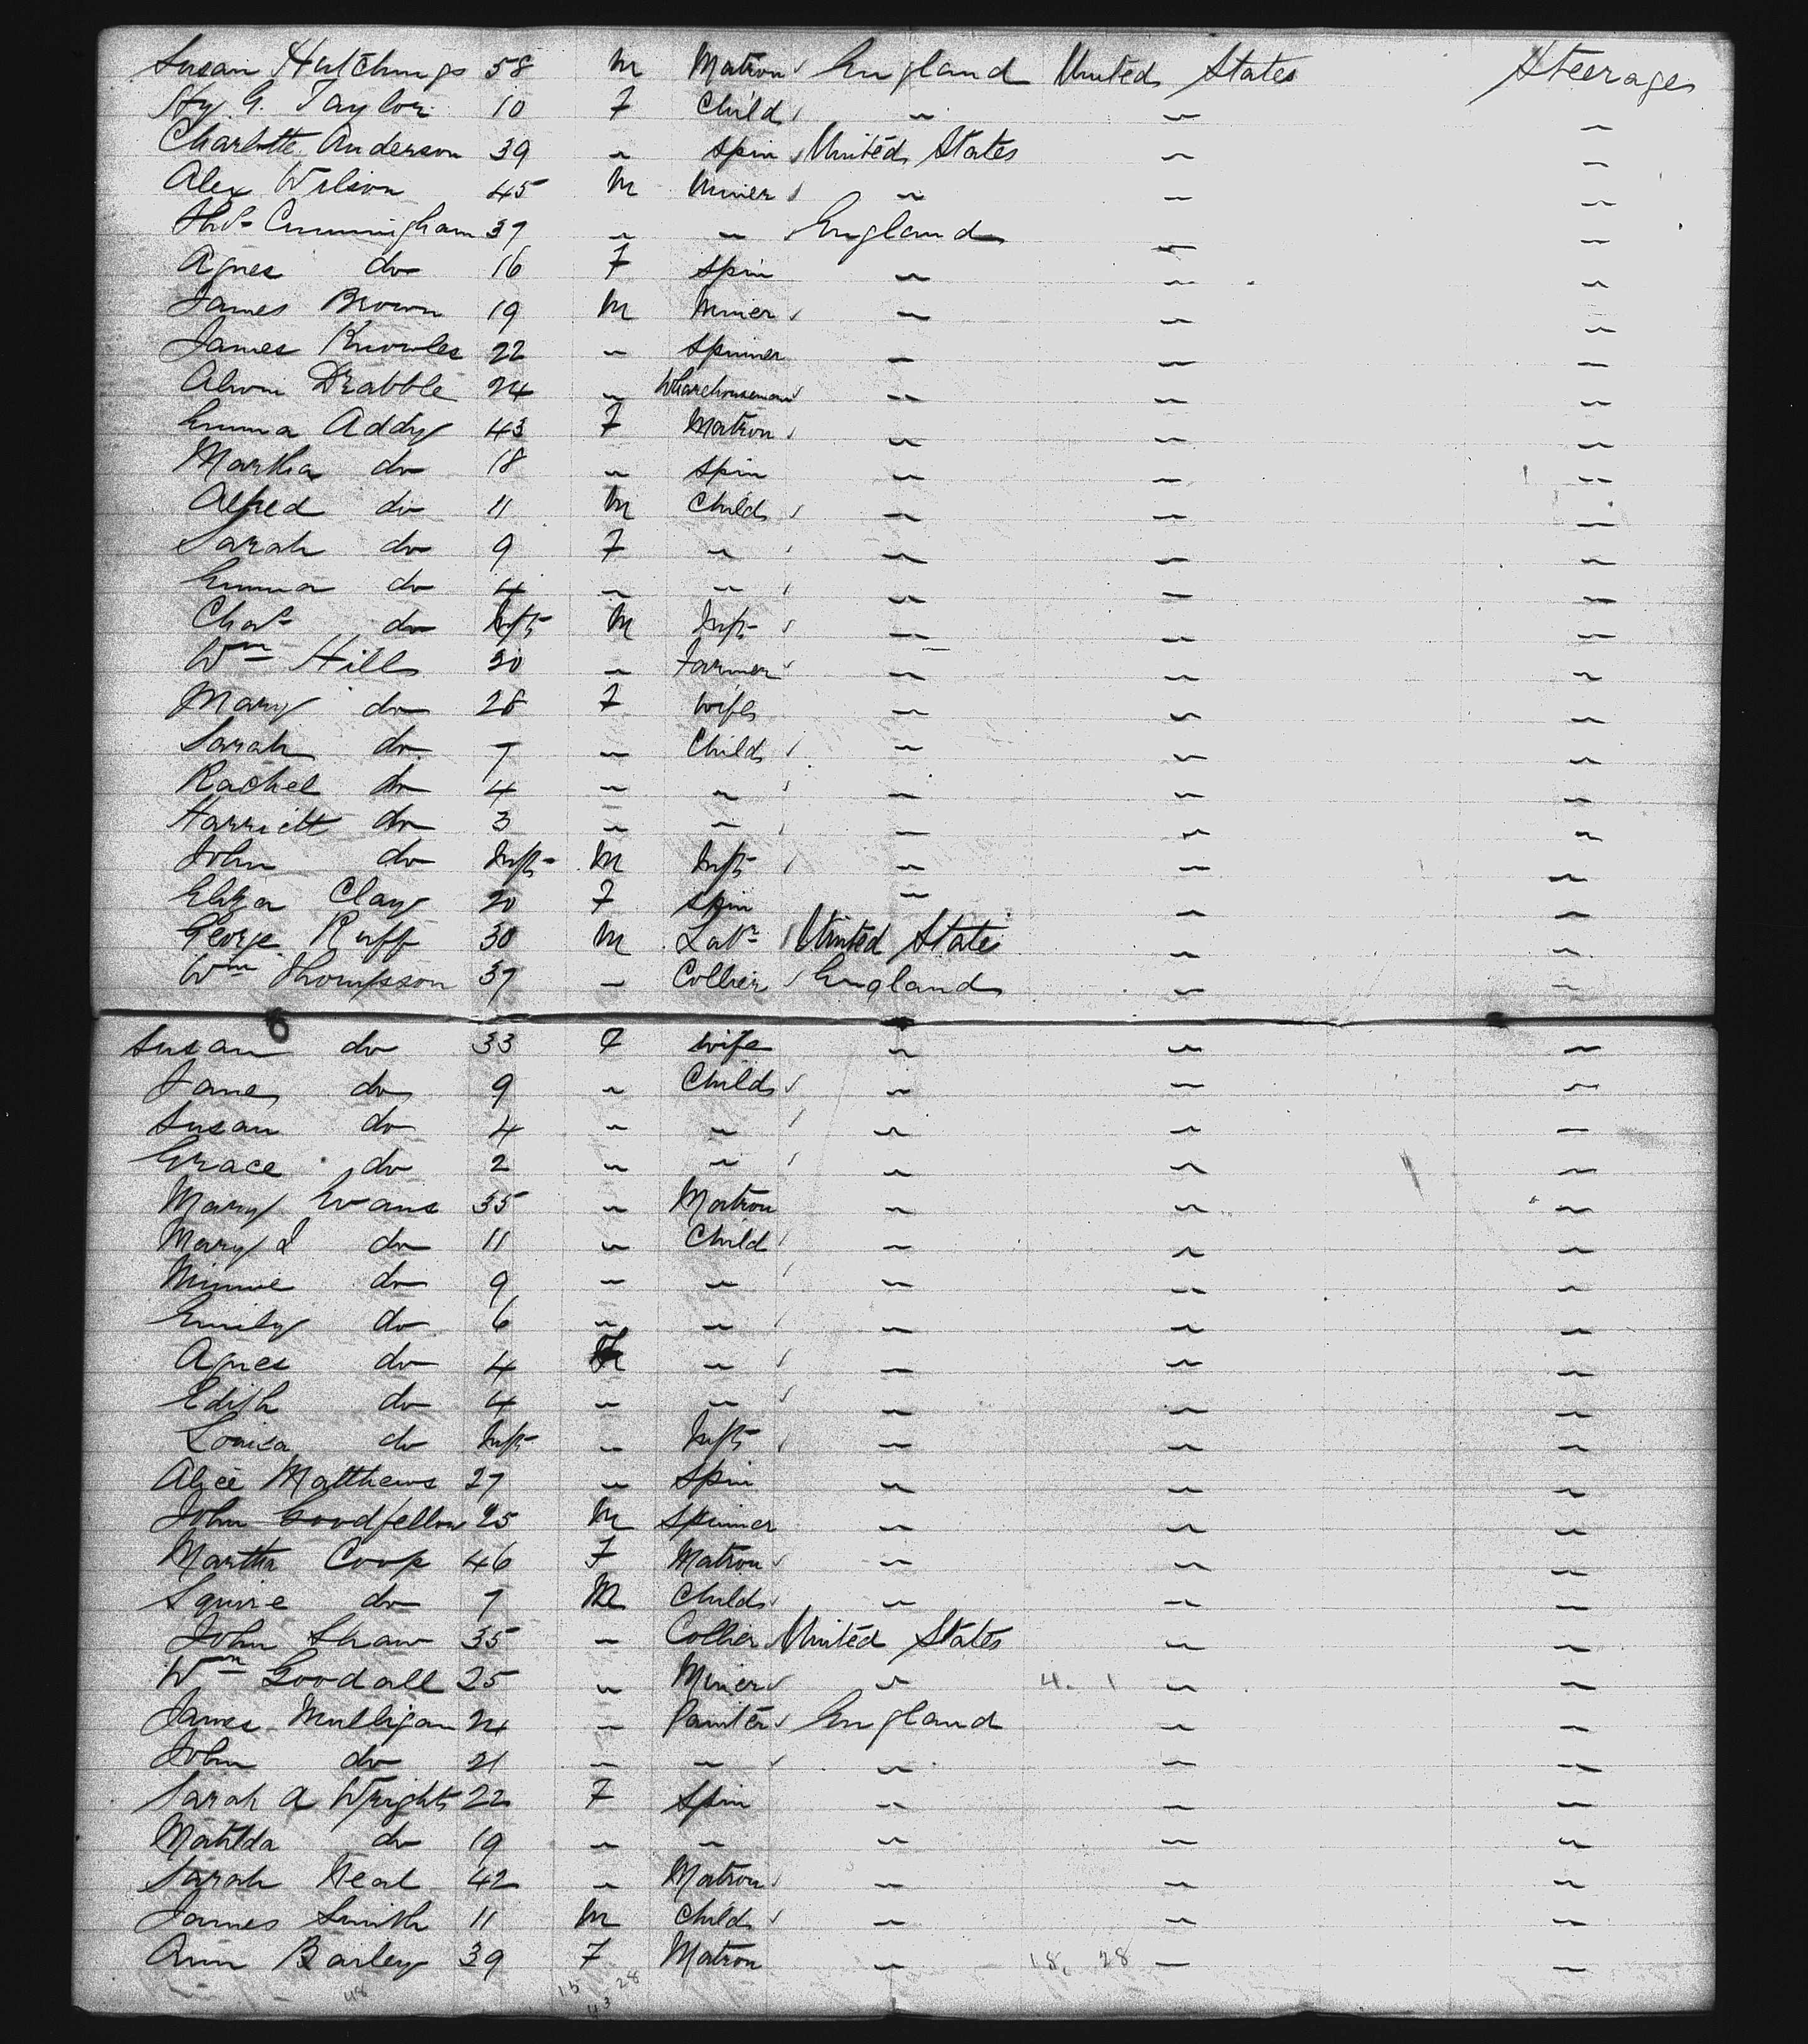 Susan Hutchings 58 M Matron England United States Steerage
Hy G. Taylor 10 F Child " " "
Charlotte Anderson 39 " Spin United States " "
Alex Wilson 45 M Miner " " "
Thos Cunningham 37 " " England " "
Agnes do 16 F Spin " " "
James Brown 19 M Miner " " "
James Knowles 22 " Spinner " " "
Drabble 24 " Wharehouseman " " "
Emma Addy 43 F Matron " " "
Martha do 18 " Spin " " "
Alfred do 11 M Child " " "
Sarah do 9 F " " " "
Emma do 4 " " " " "
Chas do Inft M Inft " " "
Wm Hills 30 " Farmer " " "
Mary do 28 F Wife " " "
Sarah do 7 " Child " " "
Rachel do 4 " " " " "
Harriett do 3 " " " " "
John do Inft M Inft " " "
Eliza Clay 20 F Spin " " "
George Ruff 30 M Labr United States " "
Wm Thompsson 37 " Collier England " "
6
Susan do 33 F Wife " " "
Jane do 9 " Child " " "
Susan do 4 " " " " "
Grace do 2 " " " " "
Mary Evans 35 " Matron " " "
Mary J do 11 " Child " " "
Minnie do 9 " " " " "
Emily do 6 " " " " "
Agnes do 4 F " " " "
Edith do 4 " " " " "
Louisa do Inft " Inft " " "
Alice Matthews 27 " Spin " " "
John Goodfellow 25 M Spinner " " "
Martha Coop 46 F Matron " " "
Squire do 7 M Child " " "
John Shaw 35 " Collier United States " "
Wm Goodall 25 " Miner " 4. 1 " "
James Mulligan 24 " Painter England " "
John do 21 " " " " "
Sarah A Wright 22 F Spin " " "
Matilda do 19 " " " " "
Sarah Neal 42 " Matron " " "
James Smith 11 M Child " " "
Ann Barley 39 F Matron " 18, 28 " "
48 15 28
43